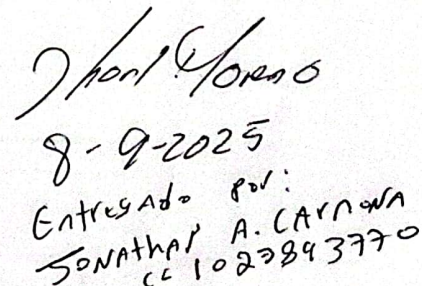 Jhon Moreno
8-9-2025
Entregado por:
JONAthAN A. CArmONA
CC 1023893770